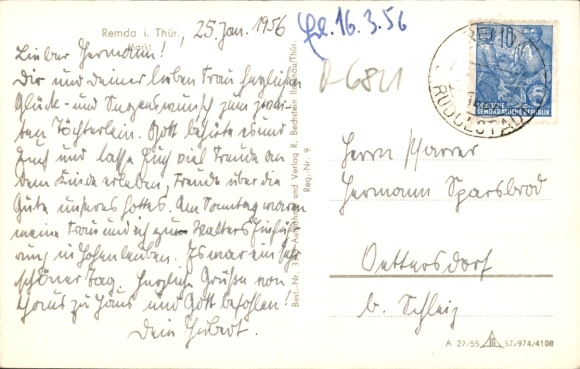 Remda i. Thür., 25. Jan. 1956
Markt
bl. 16.3.56
Lieber Hermann!
Dir und deiner lieben Frau herzlichen
Glück- und Segenswunsch zum zwei-
ten Töchterlein. Gott behüte
Euch und lasse Euch viel Freude an
dem Kinde erleben, Freude über die
Güte unseres Gottes. Am Sonntag waren
meine Frau und ich zur Walters Einfüh-
rung in Hohenleuben. Es war ein sehr
schöner Tag. Herzliche Grüße von
Haus zu Haus und Gott befohlen!
Dein Hubert.
Best.-Nr. Aufnahme und Verlag R. Bechstein Ilmenau/Thür.
Reg.-Nr. 9
D-6821
10
DEUTSCHE
DEMOKRATISCHE REPUBLIK
RUDOLSTADT
Herrn Pfarrer
Hermann Sparsbrod
Oettersdorf
b. Schleiz
A 27/55 57/974/4108